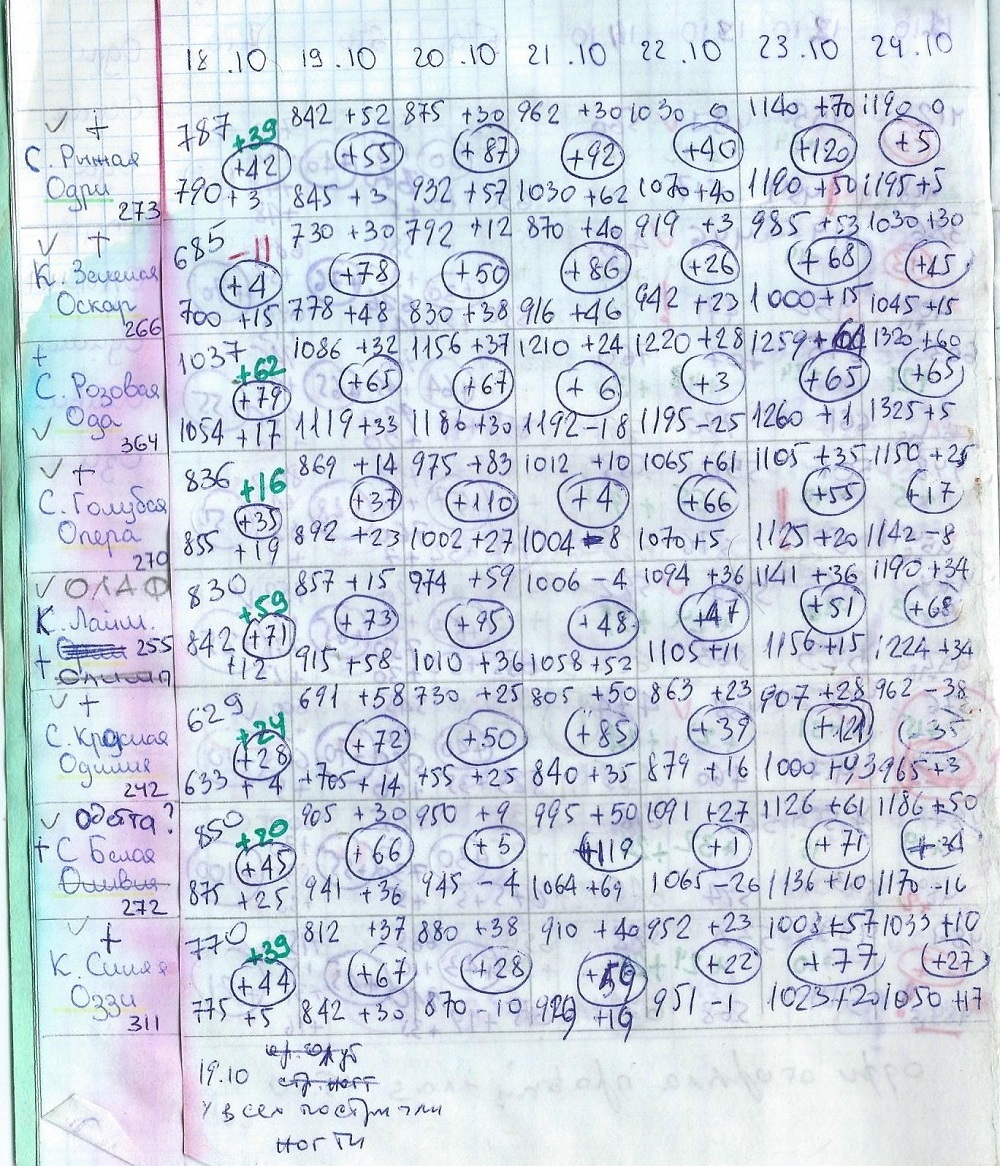 18.10 19.10 20.10 21.10 22.10 23.10 24.10
787 +39 842 +52 875 +30 962 +30 1030 0 1140 +70 1190 0
С. Рыжая +42 +55 +87 +92 +40 +120 +5
Одри 790 +3 845 +3 932 +57 1030 +62 1070 +40 1190 +50 1195 +5
273
685 -11 730 +30 792 +12 870 +40 919 +3 985 +53 1030 +30
К. Зеленая +4 +78 +50 +86 +26 +68 +45
Оскар 700 +15 778 +48 830 +38 916 +46 942 +23 1000 +15 1045 +15
266
+ 1037 +62 1086 +32 1156 +37 1210 +24 1220 +28 1259 1320 +60
С. Розовая +79 +65 +67 +6 +3 +65 +65
Ода 1054 +17 1119 +33 1186 +30 1192 -18 1195 -25 1260 +1 1325 +5
364
+ 836 +16 869 +14 975 +83 1012 +10 1065 +61 1105 +35 1150 +25
С. Голубая +35 +37 +110 +4 +66 +55 +17
Опера 855 +19 892 +23 1002 +27 1004 -8 1070 +5 1125 +20 1142 -8
270
ОЛАФ 830 +59 857 +15 974 +59 1006 -4 1094 +36 1141 +36 1190 +34
К. Лайм. +71 +73 +95 +48 +47 +51 +68
255 842 +12 915 +58 1010 +36 1058 +52 1105 +11 1156 +15 1224 +34
+
629 +24 691 +58 730 +25 805 +50 863 +23 907 +28 962 -38
С. Красная +28 +72 +50 +85 +39 +121 -35
Одилия 633 +4 705 +14 755 +25 840 +35 879 +16 1000 +93 965 +3
242
Одетта? 850 +20 905 +30 950 +9 995 +50 1091 +27 1126 +61 1186 +50
+ С Белая +45 +66 +5 +119 +1 +71 +34
Оливия 875 +25 941 +36 945 -4 1064 +69 1065 -26 1136 +10 1170 -16
272
+ 770 +39 812 +37 880 +38 910 +40 952 +23 1003 +57 1033 +10
К. Синяя +44 +67 +28 +22 +77 +27
Оззи 775 +5 842 +30 870 -10 929 +19 951 -1 1023 +20 1050 +17
311
19.10
у всех постригли
ногти